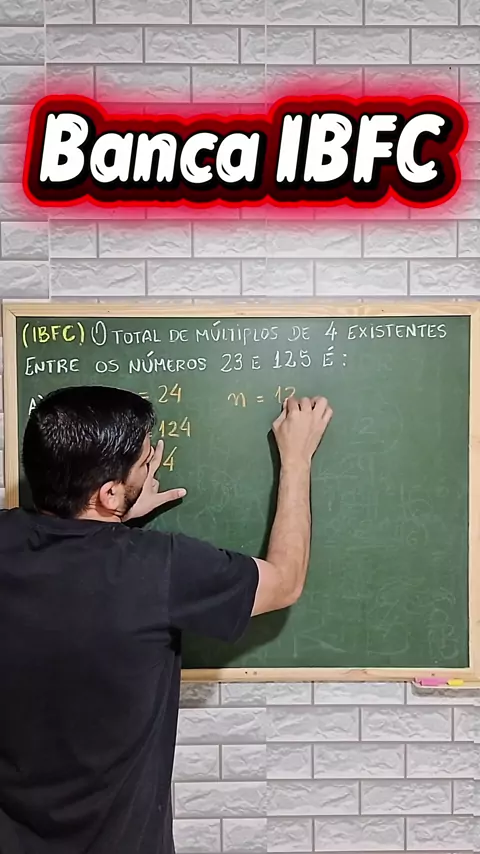 Banca IBFC
(IBFC) O TOTAL DE MÚLTIPLOS DE 4 EXISTENTES
ENTRE OS NÚMEROS 23 E 125 É:
A) = 24 n = 12
124
4